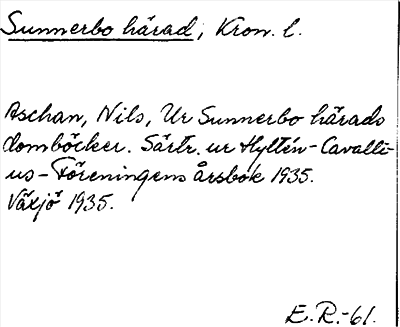 Sunnerbo härad, Kron. l.
Aschan, Nils, Ur Sunnerbo härads
domböcker. Särtr. ur Hyltén-Cavalli-
us-Föreningens årsbok 1935.
Växjö 1935.
E.R.-61.